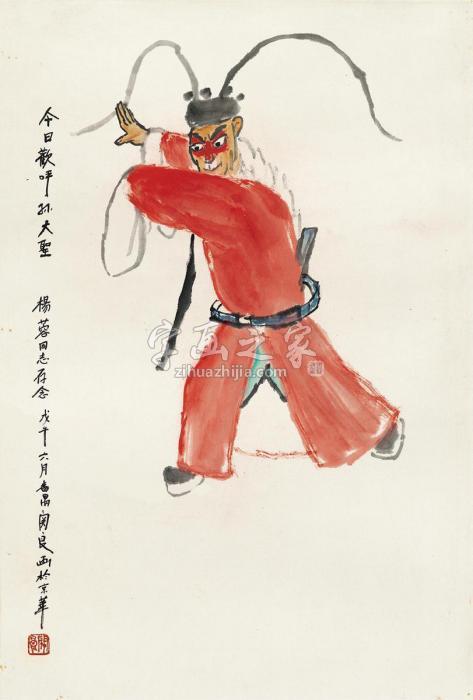 今日歡呼孙大聖
楊蓉同志存念 戊午六月番禺関良画於京華
字画之家
www.zihuazhijia.com